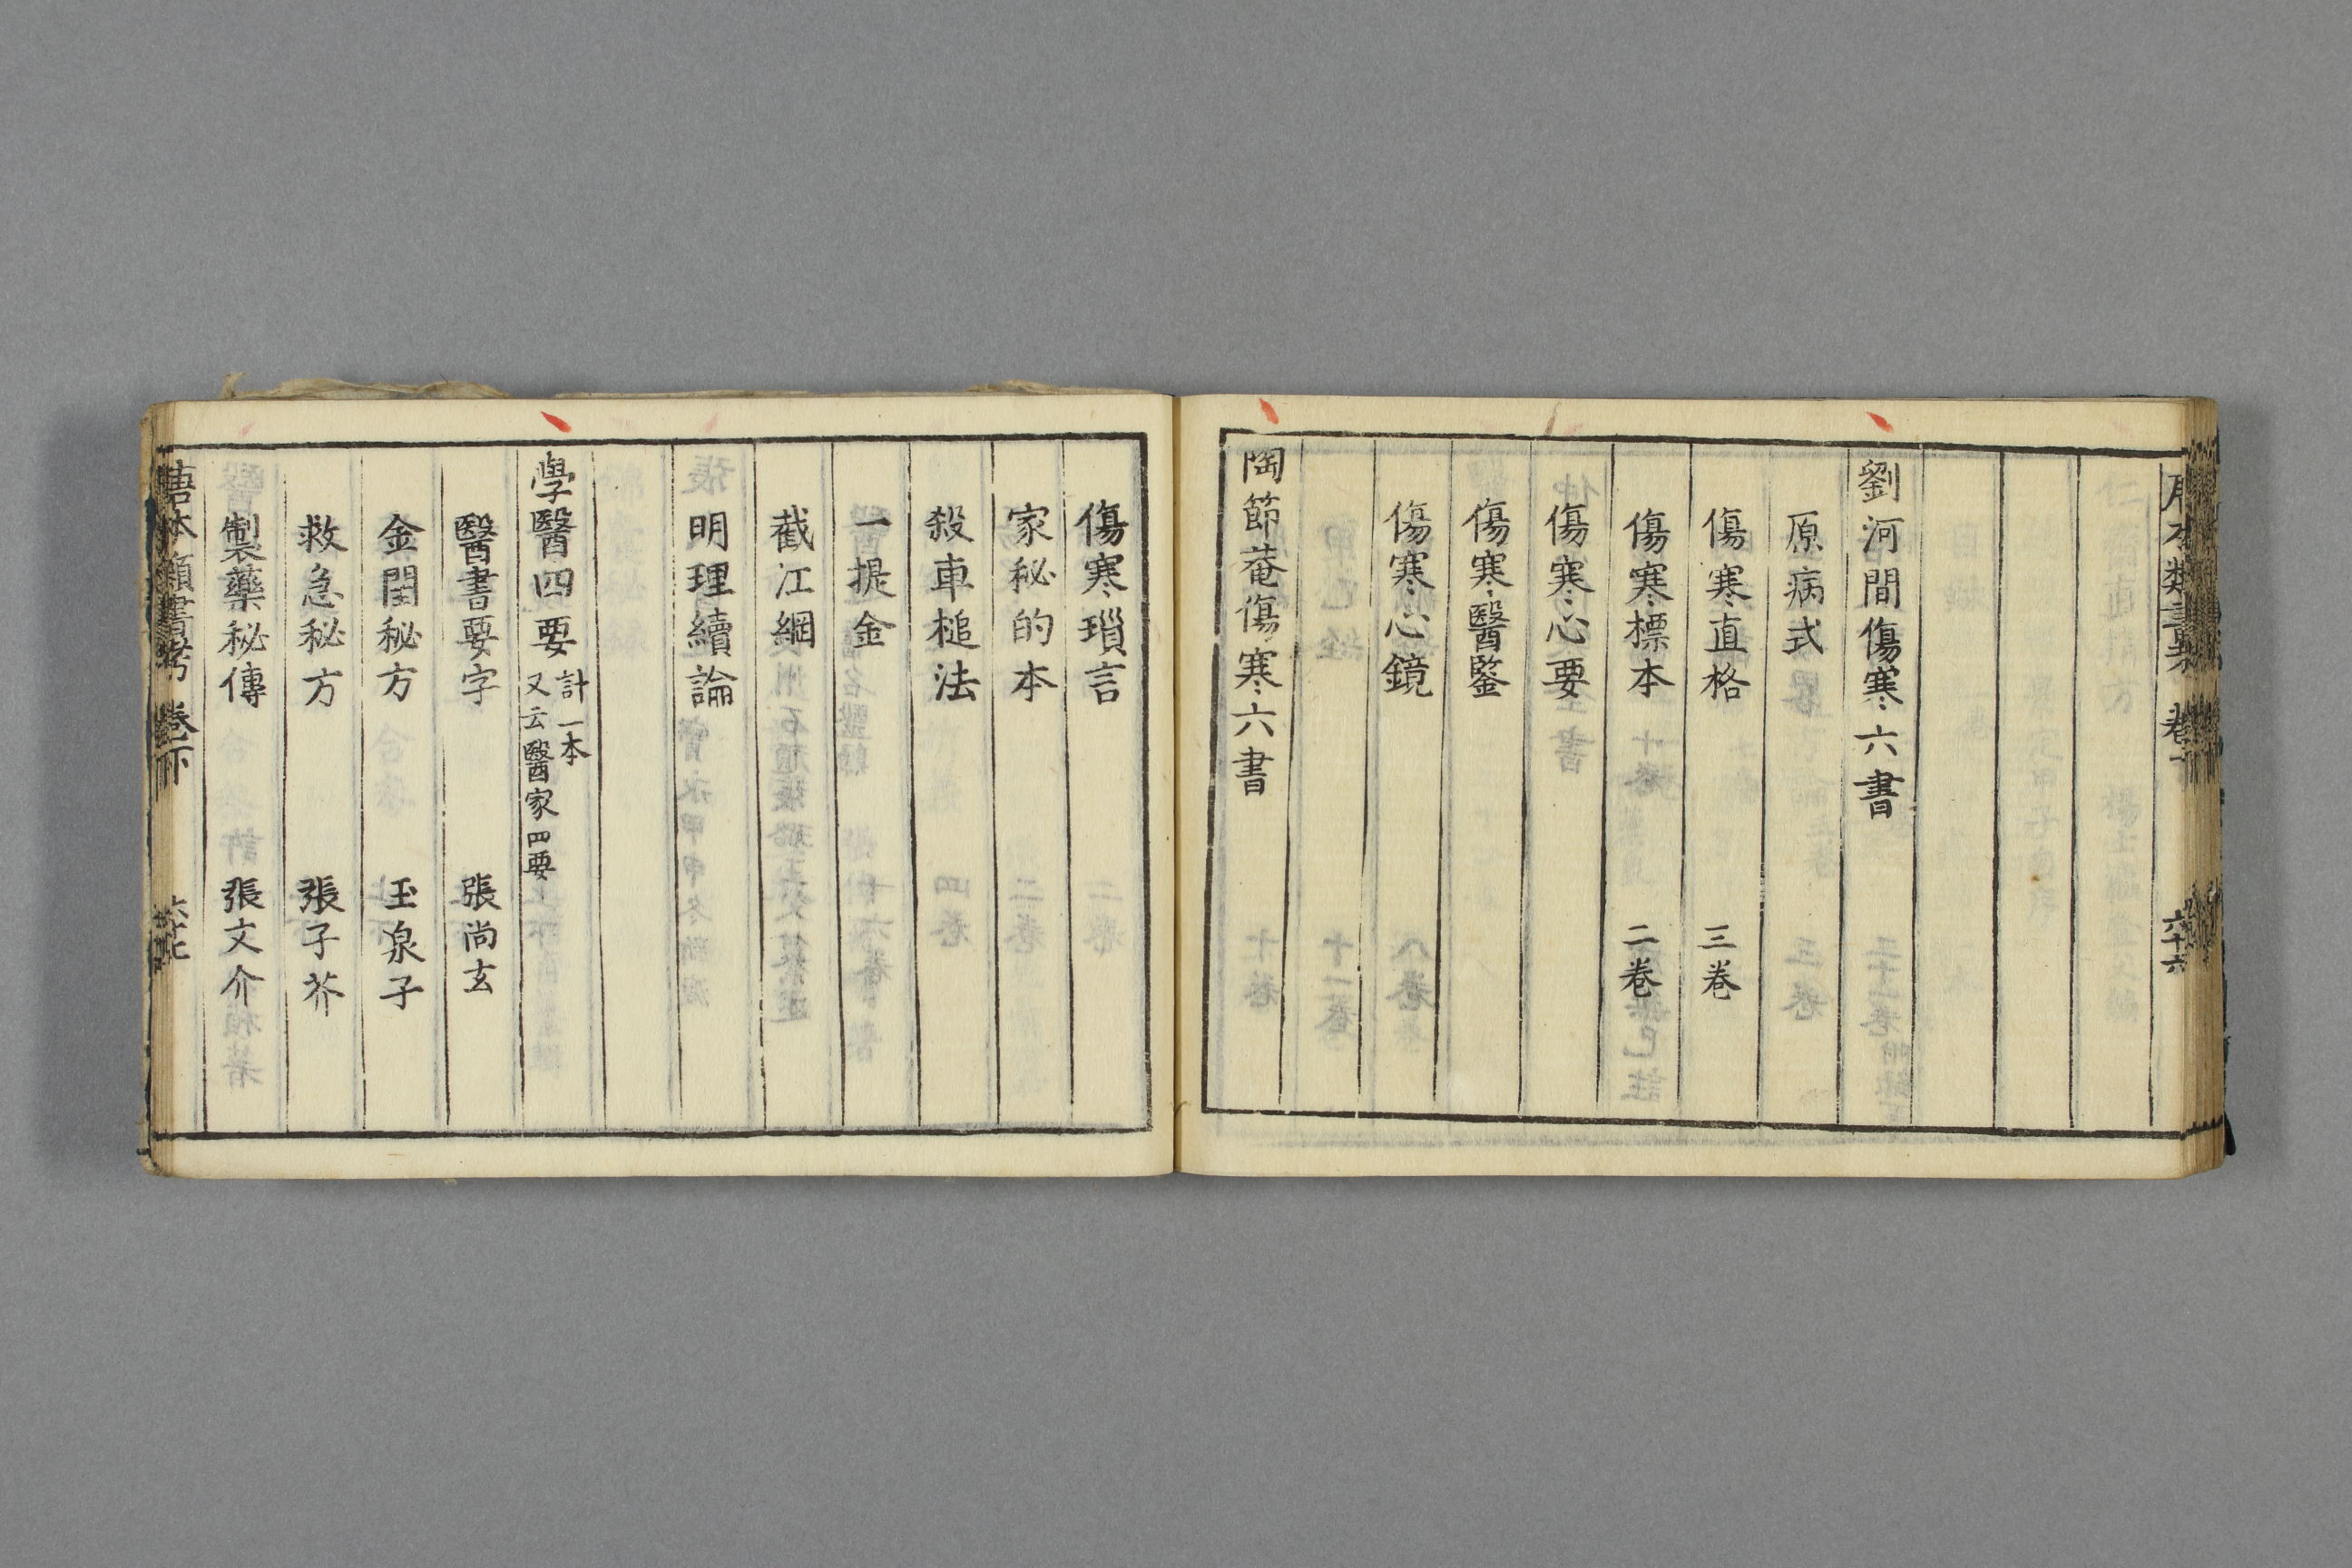 劉河間傷寒六書
原病式
傷寒直格 三卷
傷寒標本 二卷
傷寒心要
傷寒醫鑒
傷寒心鏡
陶節菴傷寒六書
六十六
傷寒瑣言
家秘的本
殺車槌法
一提金
截江綱
明理續論
學醫四要 計一本 又云醫家四要
醫書要字 張尚玄
金閨秘方 玉泉子
救急秘方 張子芥
製藥秘傳 張文介
唐本類書考 卷下